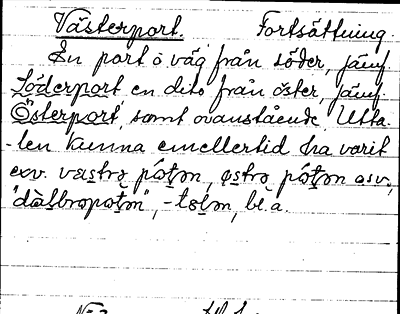 Västerport. Fortsättning.
En port å väg från söder, jämf.
Söderport en dito från öster, jämf.
Österport, samt ovanstående. Utta-
-len kunna emellertid ha varit
exv. væstrə pótən, østrə pótən osv.,
"dàlbropotən", -tolən, bl.a.